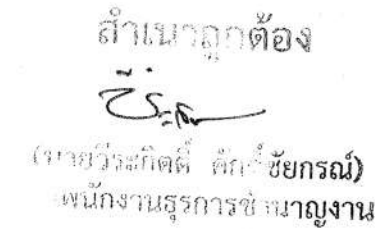 สำเนาถูกต้อง
(นายวีระกิตติ์ ศักดิ์ชัยกรณ์)
เจ้าพนักงานธุรการชำนาญงาน